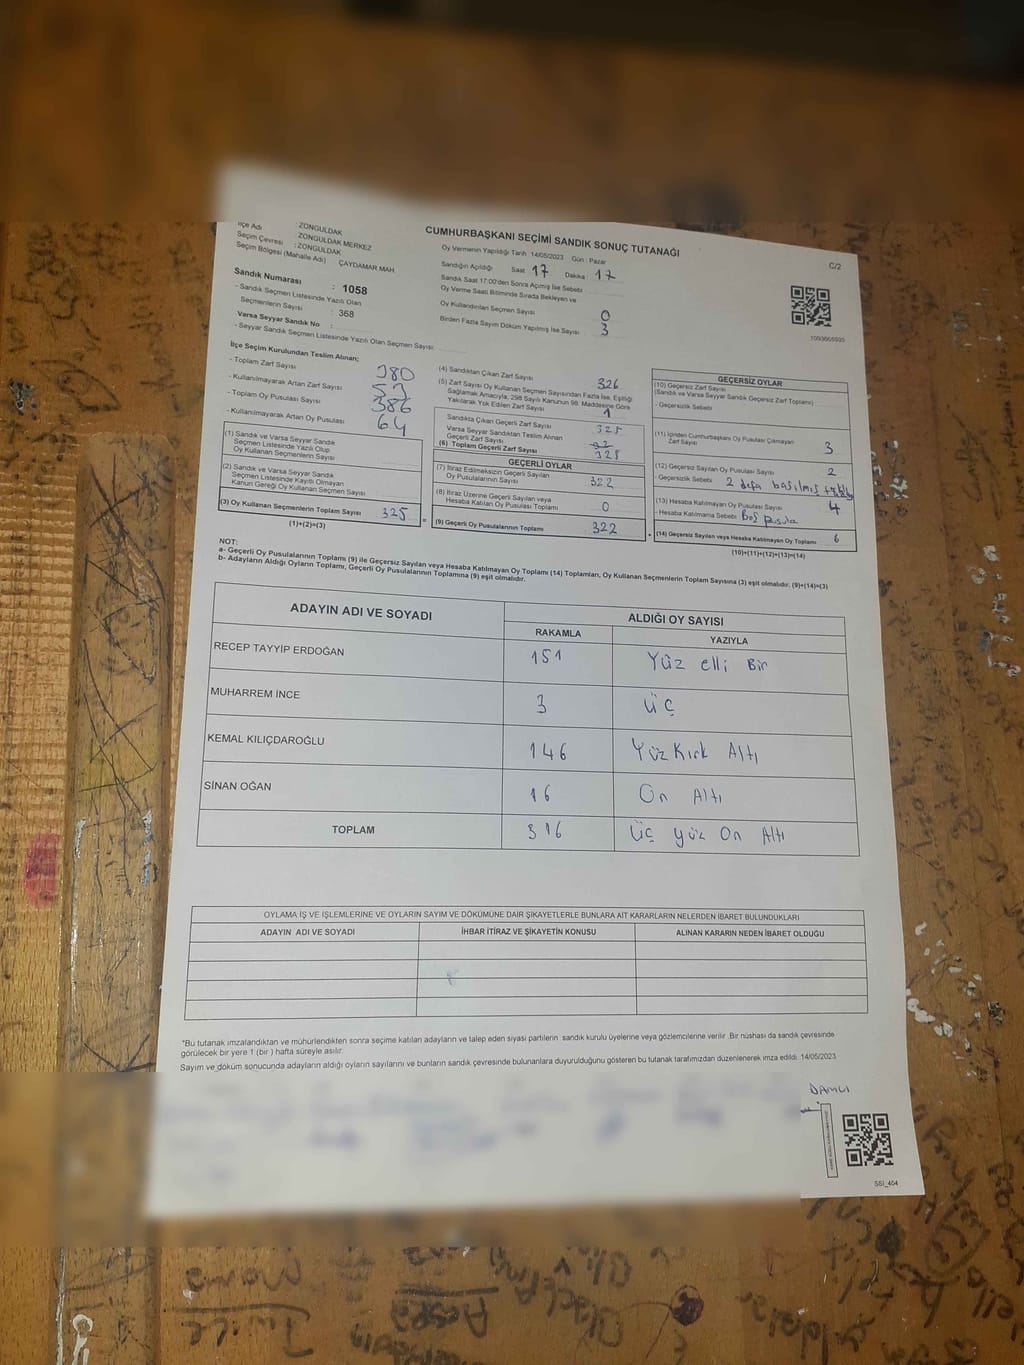 CUMHURBAŞKANI SEÇİMİ SANDIK SONUÇ TUTANAĞI
C/2
İlçe Adı : ZONGULDAK
Seçim Çevresi : ZONGULDAK MERKEZ
Seçim Bölgesi (Mahalle Adi) : ZONGULDAK
ÇAYDAMAR MAH.
Sandık Numarası : 1058
- Sandık Seçmen Listesinde Yazılı Olan
Seçmenlerin Sayısı : 368
Varsa Seyyar Sandık No :
- Seyyar Sandık Seçmen Listesinde Yazılı Olan Seçmen Sayısı
Oy Vermenin Yapıldığı Tarih 14/05/2023 Gün : Pazar
Sandığın Açıldığı Saat 17 Dakika : 17
Sandık Saat 17:00'den Sonra Açımış İse Sebebi
Oy Verme Saati Bitiminde Sırada Bekleyen ve
Oy Kullandırılan Seçmen Sayısı 0
Birden Fazla Sayım Döküm Yapılmış İse Sayısı 3
İlçe Seçim Kurulundan Teslim Alınan;
- Toplam Zarf Sayısı 380
- Kullanılmayarak Artan Zarf Sayısı
- Toplam Oy Pusulası Sayısı 386
- Kullanılmayarak Artan Oy Pusulası 64
(1) Sandık ve Varsa Seyyar Sandık
Seçmen Listesinde Yazılı Olup
Oy Kullanan Seçmenlerin Sayısı
(2) Sandık ve Varsa Seyyar Sandık
Seçmen Listesinde Kayıtlı Olmayan
Kanun Gereği Oy Kullanan Seçmen Sayısı
(3) Oy Kullanan Seçmenlerin Toplam Sayısı 325
(1)+(2)=(3)
(4) Sandıktan Çıkan Zarf Sayısı 326
(5) Zarf Sayısı Oy Kullanan Seçmen Sayısından Fazla İse, Eşitliği
Sağlamak Amacıyla, 298 Sayılı Kanunun 98. Maddesine Göre
Yakılarak Yok Edilen Zarf Sayısı 1
Sandıkta Çıkan Geçerli Zarf Sayısı 325
Varsa Seyyar Sandıktan Teslim Alınan
Geçerli Zarf Sayısı
(6) Toplam Geçerli Zarf Sayısı 325
GEÇERLİ OYLAR
(7) İtiraz Edilmeksizin Geçerli Sayılan
Oy Pusulalarının Sayısı 322
(8) İtiraz Üzerine Geçerli Sayılan veya
Hesaba Katılan Oy Pusulası Toplamı 0
(9) Geçerli Oy Pusulalarının Toplamı 322
GEÇERSİZ OYLAR
(10) Geçersiz Zarf Sayısı
(Sandık ve Varsa Seyyar Sandık Geçersiz Zarf Toplamı)
- Geçersizlik Sebebi
(11) İçinden Cumhurbaşkanı Oy Pusulası Çıkmayan
Zarf Sayısı 3
(12) Geçersiz Sayılan Oy Pusulası Sayısı 2
- Geçersizlik Sebebi 2 defa basılmış
(13) Hesaba Katılmayan Oy Pusulası Sayısı 4
- Hesaba Katılmama Sebebi Boş pusula
(14) Geçersiz Sayılan veya Hesaba Katılmayan Oy Toplamı 6
(10)+(11)+(12)+(13)=(14)
NOT:
a- Geçerli Oy Pusulalarının Toplamı (9) ile Geçersiz Sayılan veya Hesaba Katılmayan Oy Toplamı (14) Toplamları, Oy Kullanan Seçmenlerin Toplam Sayısına (3) eşit olmalıdır. (9)+(14)=(3)
b- Adayların Aldığı Oyların Toplamı, Geçerli Oy Pusulalarının Toplamına (9) eşit olmalıdır.
ADAYIN ADI VE SOYADI ALDIĞI OY SAYISI
RAKAMLA YAZIYLA
RECEP TAYYİP ERDOĞAN 151 Yüz elli Bir
MUHARREM İNCE 3 Üç
KEMAL KILIÇDAROĞLU 146 Yüz Kırk Altı
SİNAN OĞAN 16 On Altı
TOPLAM 316 Üç yüz On Altı
OYLAMA İŞ VE İŞLEMLERİNE VE OYLARIN SAYIM VE DÖKÜMÜNE DAİR ŞİKAYETLERLE BUNLARA AİT KARARLARIN NELERDEN İBARET BULUNDUKLARI
ADAYIN ADI VE SOYADI İHBAR İTİRAZ VE ŞİKAYETİN KONUSU ALINAN KARARIN NEDEN İBARET OLDUĞU
*Bu tutanak imzalandıktan ve mühürlendikten sonra seçime katılan adayların ve talep eden siyasi partilerin sandık kurulu üyelerine veya gözlemcilerine verilir. Bir nüshası da sandık çevresinde
görülecek bir yere 1 (bir ) hafta süreyle asılır.
Sayım ve döküm sonucunda adayların aldığı oyların sayılarını ve bunların sandık çevresinde bulunanlara duyurulduğunu gösteren bu tutanak tarafımızdan düzenlenerek imza edildi. 14/05/2023
DAMLI
SSİ_404